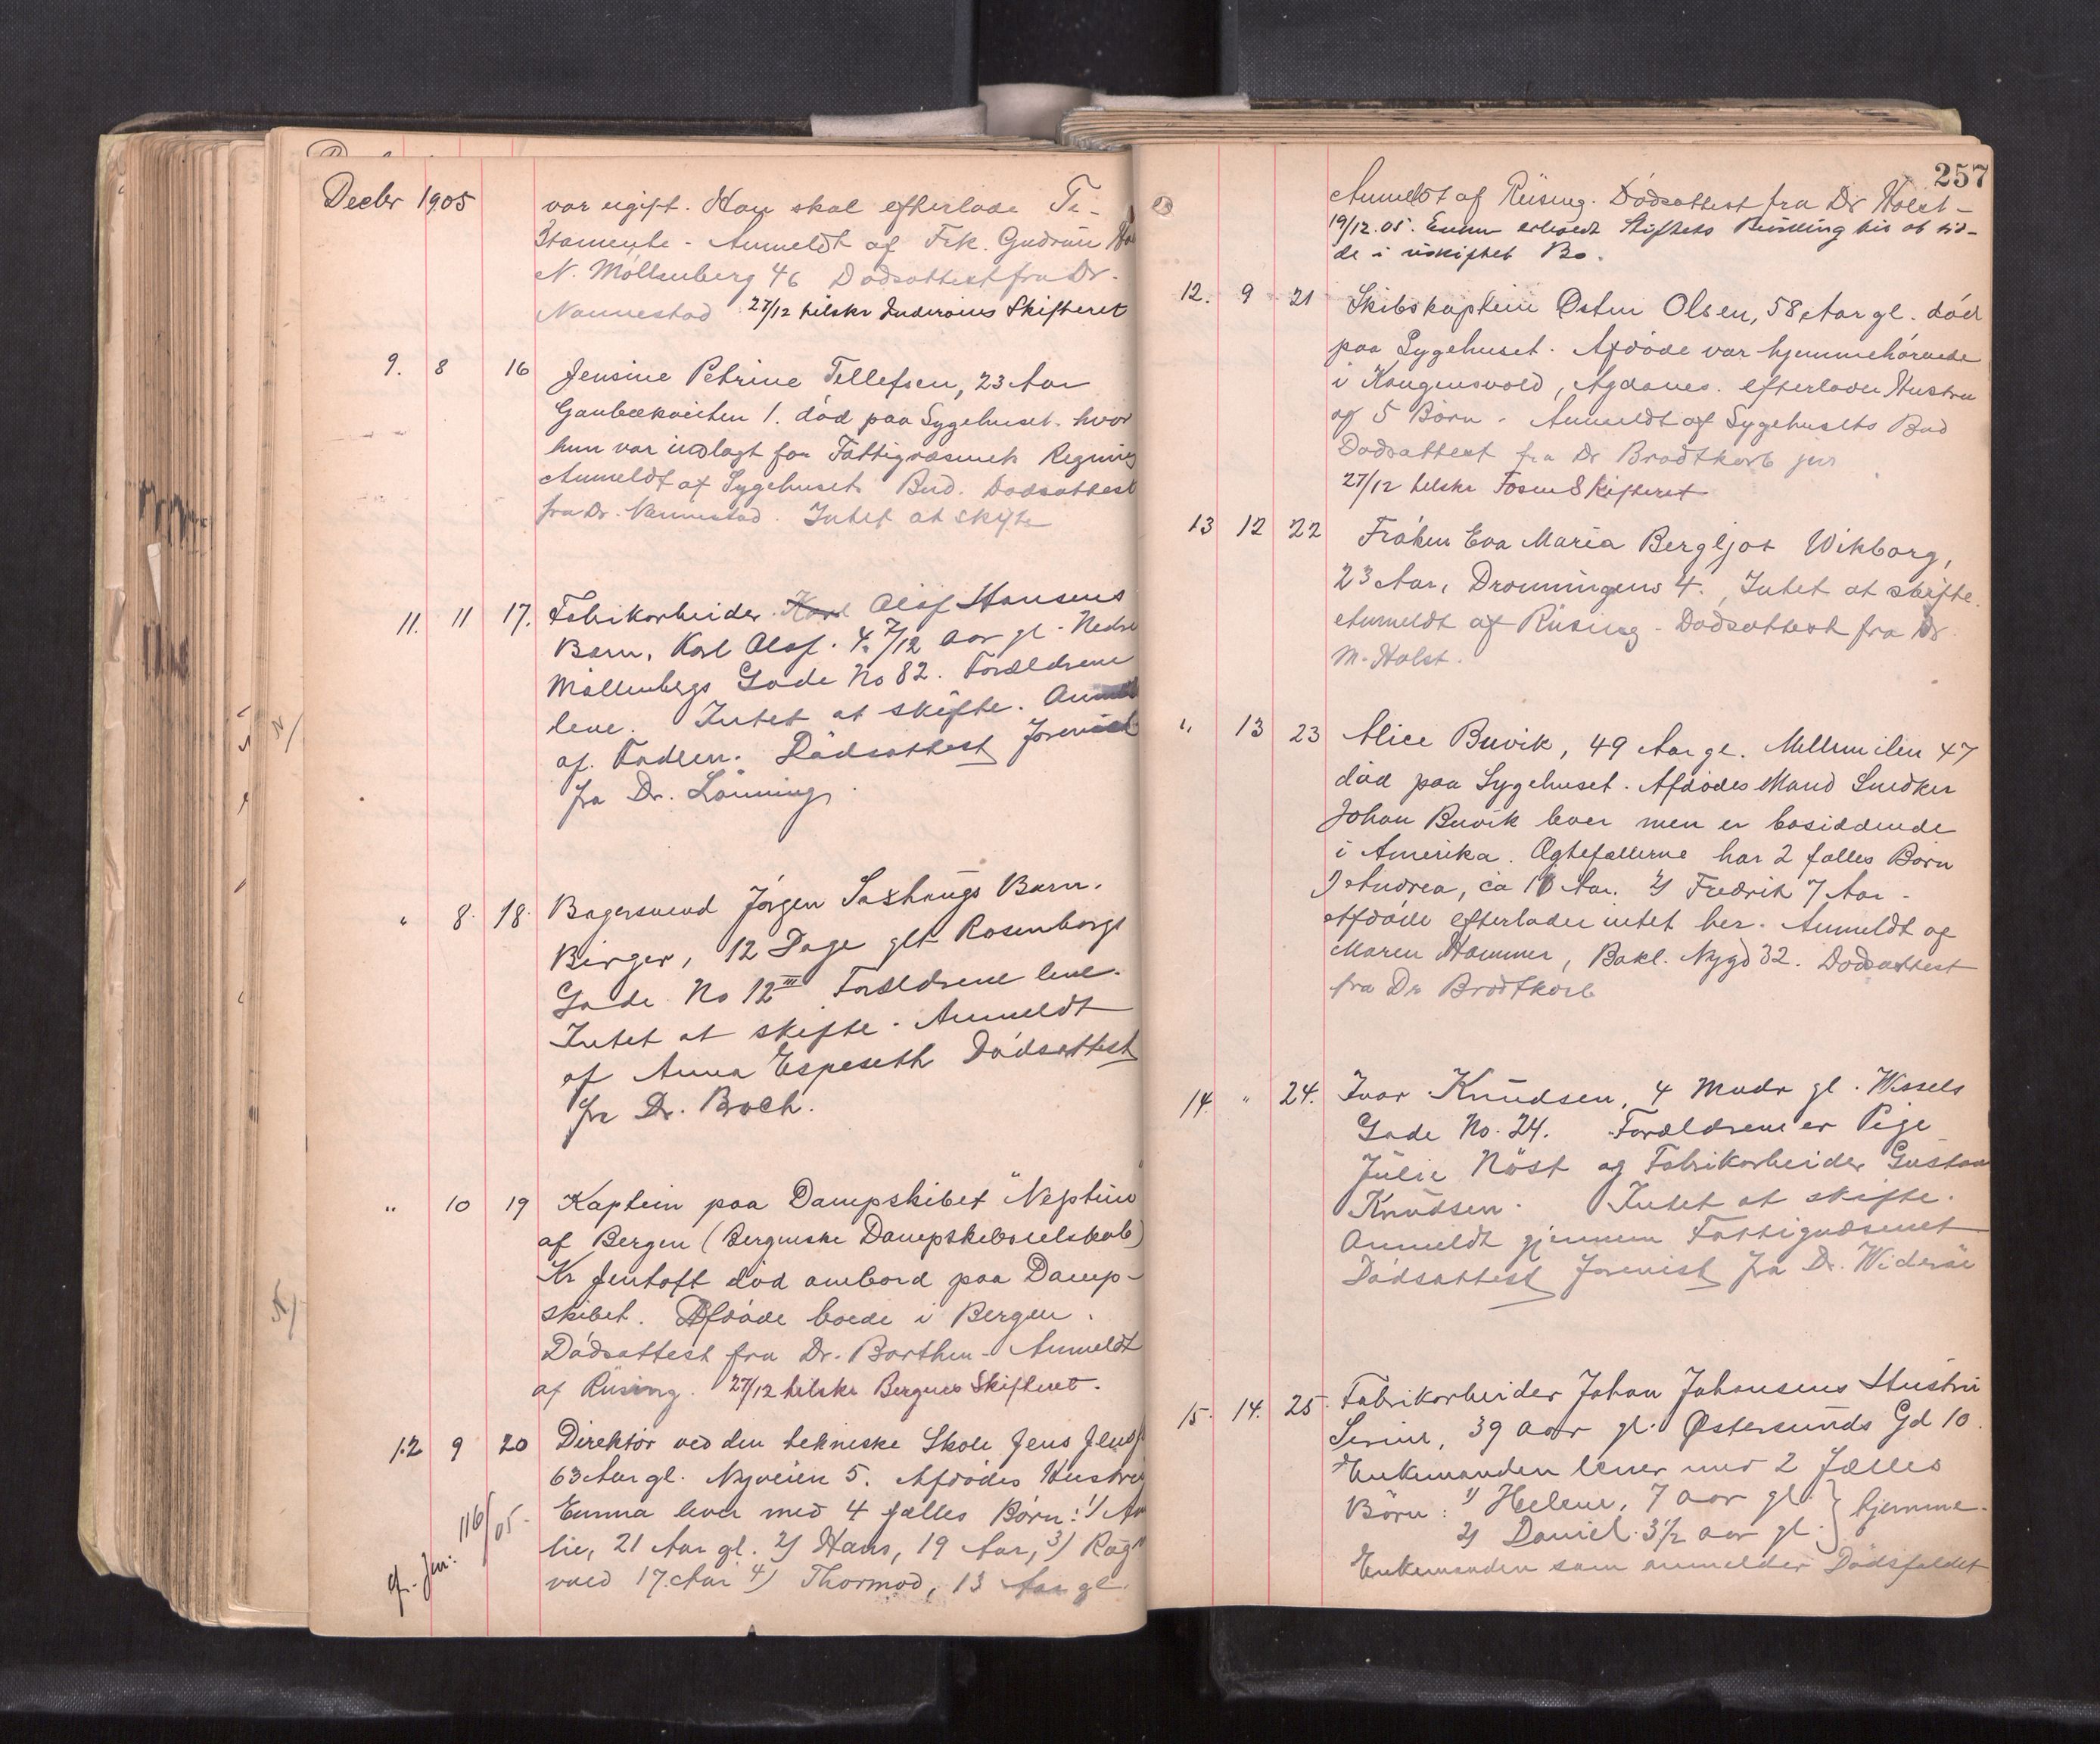 Decbr 1905
var ugift. Han skal efterlade Te-
stamente - Anmeldt af Frk. Gudrun
N. Möllenberg 46 Dødsattest fra Dr.
Nannestad 27/12 tilskr Inderøens Skifteret
9. 8 16 Jensine Petrine Tellefsen, 23 Aar
Gaubækveiten 1. død paa Sygehuset. hvor
hun var indlagt for Fattigvæsenets Regning
Anmeldt af Sygehusets Bud. Dødsattest
fra Dr. Nannestad. Intet at skifte
11. 11 17. Fabrikarbeider Karl Olaf Hansens
Barn, Karl Olaf. 4 7/12 aar gl. Nedre
Möllenbergs Gade No 82. Forældrene
leve. Intet at skifte.
af Faderen. Dødsattest forevist
fra Dr. Lönning.
" 8. 18. Bagersvend Jörgen Saxhaugs Barn.
Birger, 12 Dage glt Rosenborgs
Gade No 12 III Forældrene leve.
Intet at skifte. Anmeldt
af Anna Espeseth Dødsattest
fra Dr. Boch.
" 10 19 Kaptein paa Dampskibet "Neptun"
af Bergen (Bergenske Dampskibsselskab)
Kr Jentoft død ombord paa Damp-
skibet. Afdøde boede i Bergen.
Dødsattest fra Dr. Barthen - Anmeldt
af Rüsing. 27/12 tilskr Bergens Skifteret.
12 9 20 Direktør ved den tekniske Skole Jens
63 Aar gl. Nyveien 5. Afdødes Hustru
Emma lever med 4 fælles Børn: 1/
lie, 21 Aar gl. 2) Hans, 19 Aar, 3) Rag
vald 17 Aar 4) Thormod, 13 Aar gl.
116/05.
257
Anmeldt af Rüsing. Dødsattest fra Dr Holst -
19/12.05. Enken erholdt Skiftets Bevilling til at sid-
de i uskiftet Bo.
12. 9 21 Skibskaptein Østen Olsen, 58 Aar gl. død
paa Sygehuset. Afdøde var hjemmehørende
i Kongensvold, Agdanes. efterlader Hustru
og 5 Børn. Anmeldt af Sygehusets Bud
Dødsattest fra Dr Brodtkorb jnr
27/12 tilskr Fosens Skifteret
13 12 22 Frøken Eva Maria Bergljot Wikborg,
23 Aar, Dronningens 4. Intet at skifte.
Anmeldt af Rüsing - Dødsattest fra Dr
M. Holst.
" 13 23 Alice Buvik, 49 Aar gl. Mellemilen 47
død paa Sygehuset. Afdødes Mand Snedker
Johan Buvik lever men er bosiddende
i Amerika. Ægtefællerne har 2 fælles Børn
1) Andrea, ca 10 Aar. 2) Fredrik 7 Aar -
Afdøde efterlader intet her. Anmeldt af
Maren Hammer, Bakl. Nygd 32. Dødsattest
fra Dr Brodtkorb
14. " 24. Ivar Knudsen, 4 Mndr gl. Wessels
Gade No. 24. Forældrene er Pige
Julie Nöst og Fabrikarbeider Gustav
Knudsen. Intet at skifte.
Anmeldt gjennem Fattigvæsenet
Dødsattest forevist fra Dr. Widerøe
15. 14. 25. Fabrikarbeider Johan Johansens Hustru
Serine, 39 aar gl. Østersunds Gd 10.
Enkemanden lever med 2 fælles
Børn: 1) Helene, 7 aar gl. } hjemme.
2) Daniel 3 1/2 aar gl.
Enkemanden som anmelder Dødsfaldet